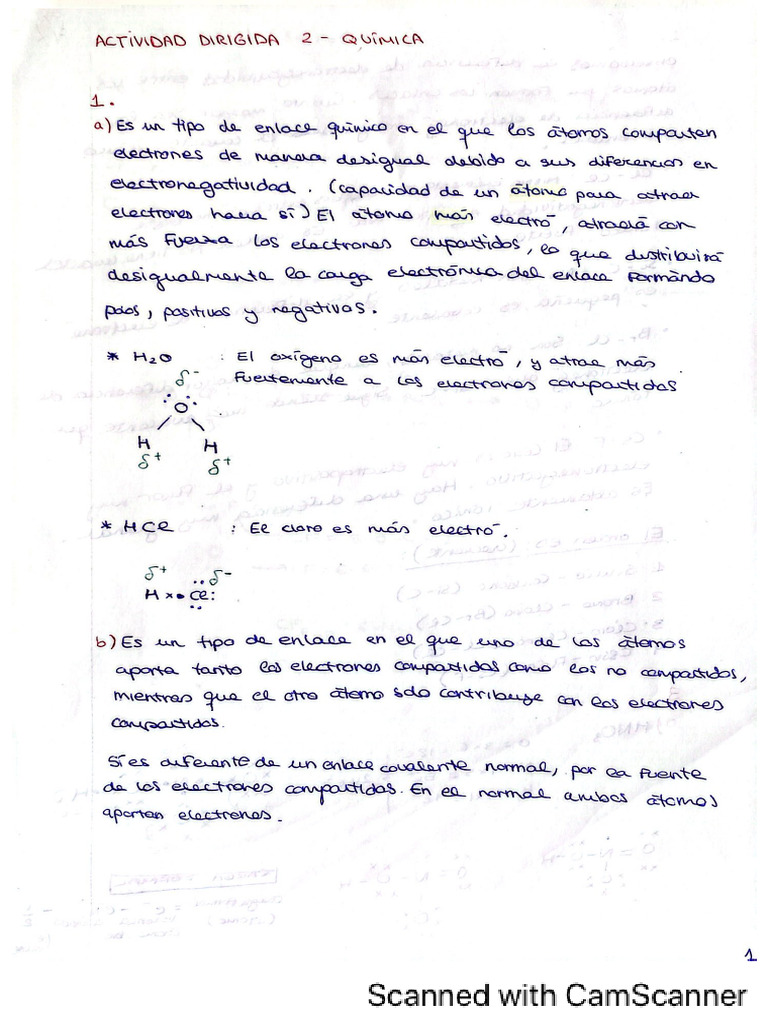 ACTIVIDAD DIRIGIDA 2 - QUÍMICA
1.
a) Es un tipo de enlace químico en el que los átomos comparten
electrones de manera desigual debido a sus diferencias en
electronegatividad. (capacidad de un átomo para atraer
electrones hacia sí) El átomo más electro⁻, atraerá con
más fuerza los electrones compartidos, lo que distribuirá
desigualmente la carga electrónica del enlace formando
polos, positivos y negativos.
* H₂O : El oxígeno es más electro⁻, y atrae más
fuertemente a los electrones compartidos
δ⁻
O
H H
δ⁺ δ⁺
* HCl : El cloro es más electro⁻.
δ⁺ δ⁻
H ×• Cl:
b) Es un tipo de enlace en el que uno de los átomos
aporta tanto los electrones compartidos como los no compartidos,
mientras que el otro átomo solo contribuye con los electrones
compartidos.
Sí es diferente de un enlace covalente normal, por la fuente
de los electrones compartidos. En el normal ambos átomos
aportan electrones.
1
Scanned with CamScanner